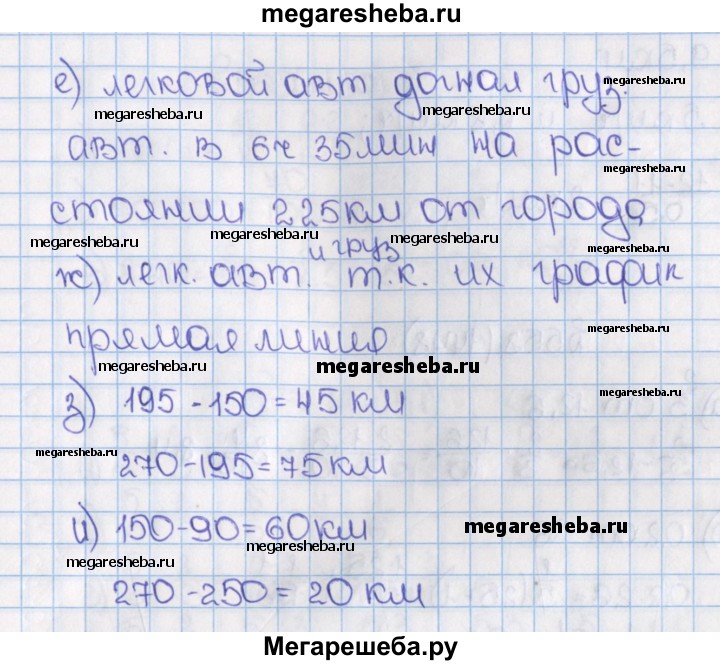 megaresheba.ru
е) легковой авт догнал груз.
megaresheba.ru
megaresheba.ru
megaresheba.ru
авт. в 6ч 35мин на рас-
megaresheba.ru
стоянии 225км от города
megaresheba.ru
megaresheba.ru
megaresheba.ru
megaresheba.ru
и груз
ж) легк. авт. т.к. их график
прямая линия
megaresheba.ru
megaresheba.ru
megaresheba.ru
з) 195 - 150 = 45 км
megaresheba.ru
megaresheba.ru
270 - 195 = 75 км
и) 150 - 90 = 60 км
megaresheba.ru
megaresheba.ru
megaresheba.ru
270 - 250 = 20 км
Мегарешеба.ру